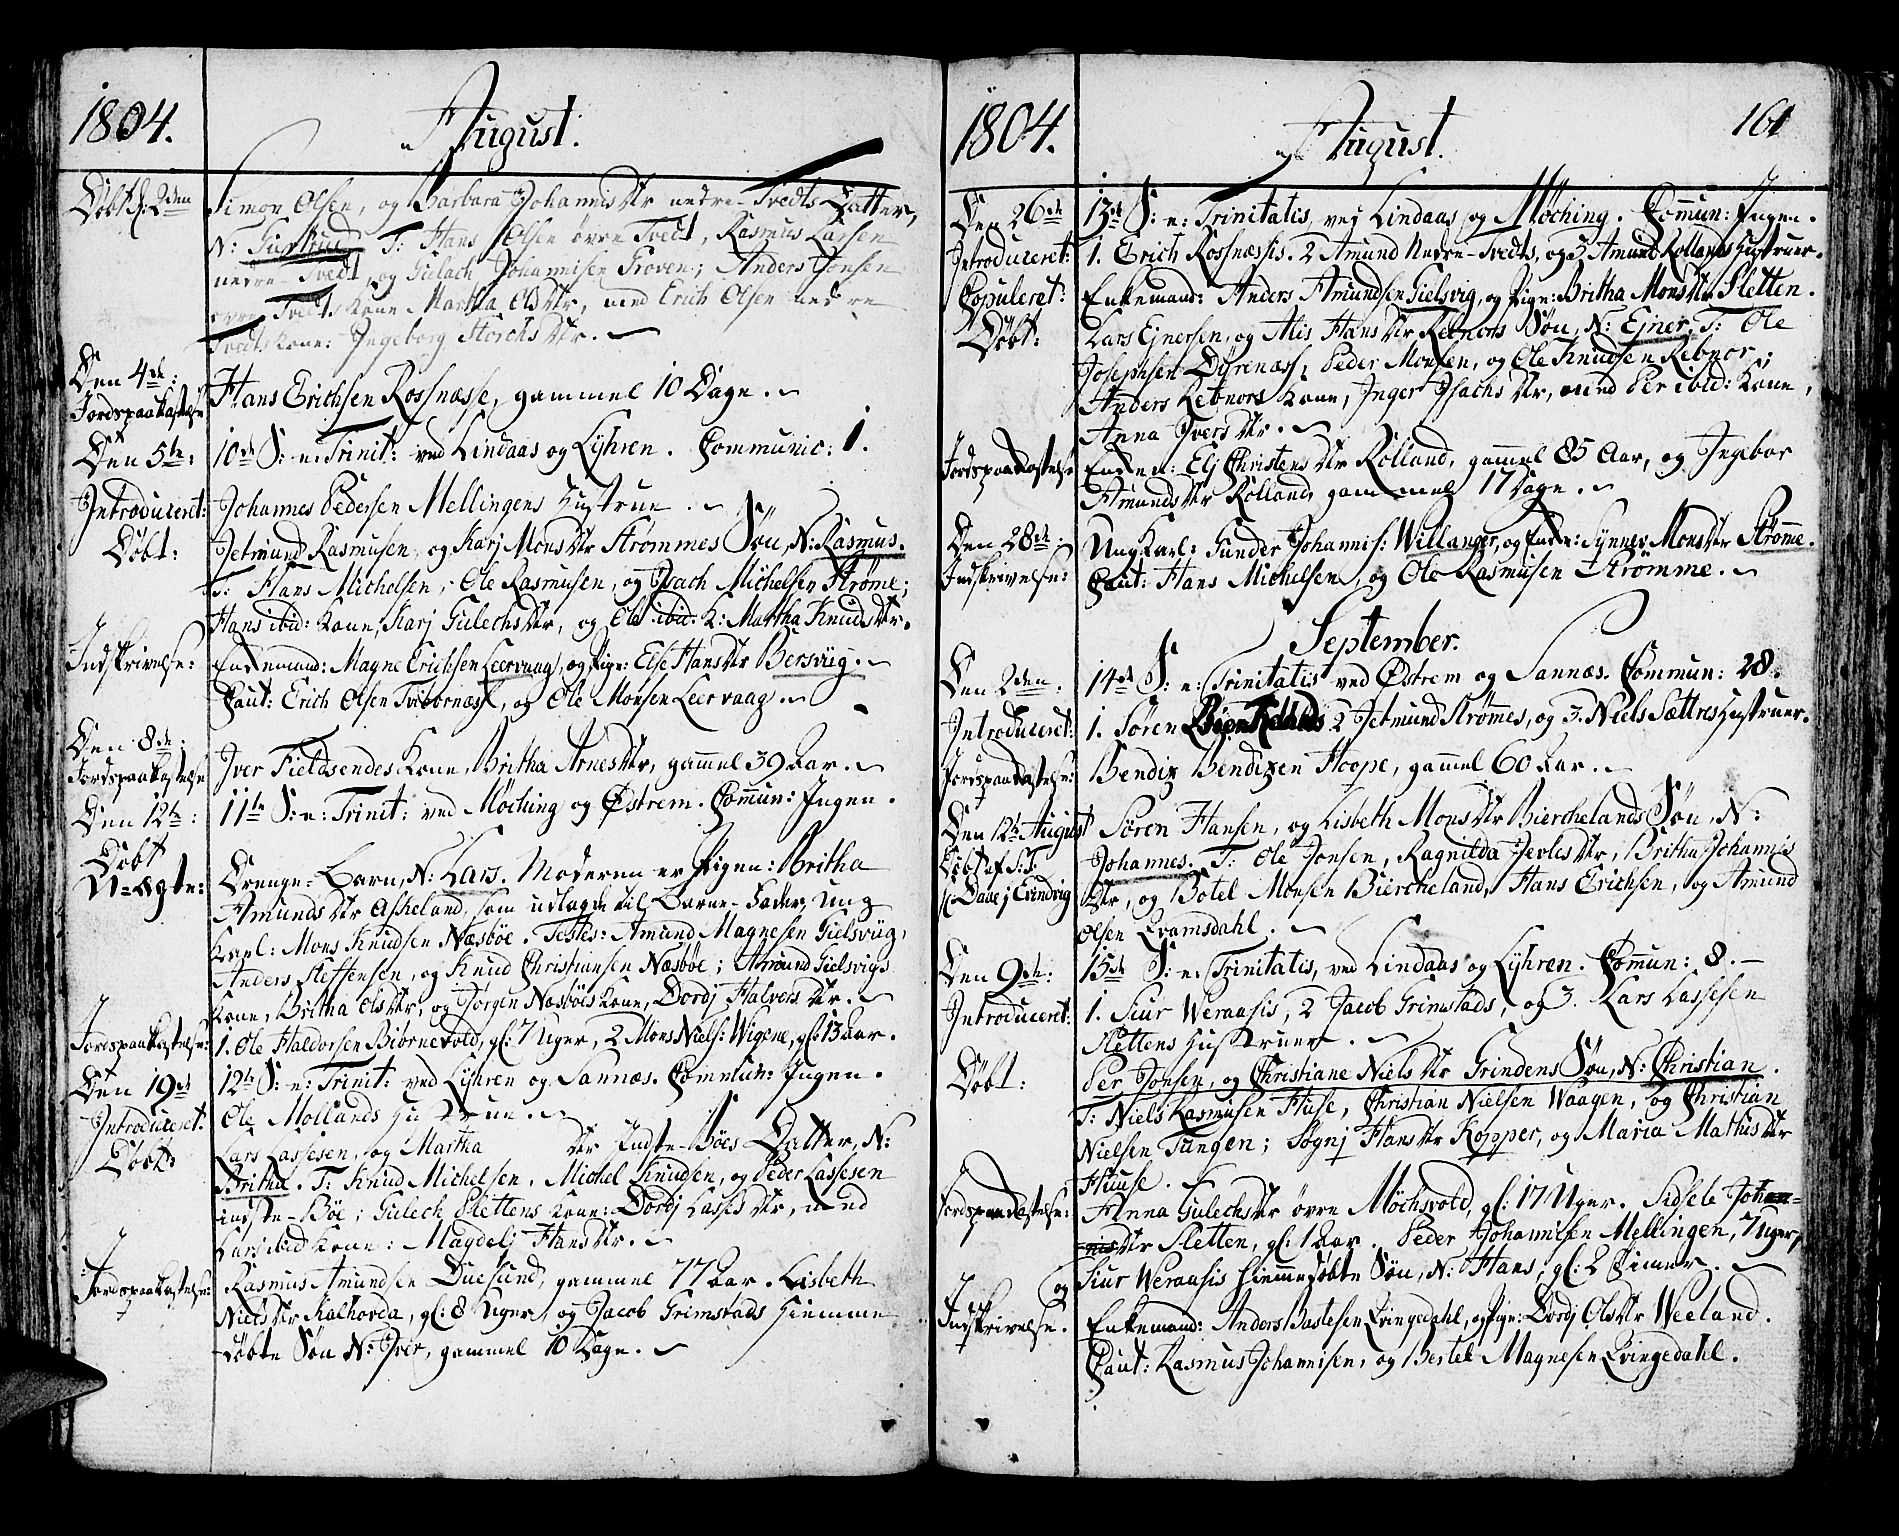 1804.
August.
Døbt d: 2den
Simon Olsen, og Barbara Johannisdtr nedre-Tvedts Datter,
N: T: Hans Olsen øvre Tvedt, Rasmus Larsen
nedre-Tvedt, og Gulach Johannisen Groven; Anders Jonsen
øvre Tvedts Kone Martha Olsdtr, med Erich Olsen nedre
Tvedts Kone: Ingeborg Storchsdtr.
Den 4de:
Jordspaakastelse
Hans Erichsen Rossnæsse, gammel 10 Dage.
Den 5te:
10de S: e: Trinit: ved Lindaas og Lÿhren. Communic: 1.
Introduceret:
Johannes Pedersen Mellingens Hustrue.
Døbt:
Jetmund Rasmusen, og Karj Monsdtr Strømmes Søn, N: Rasmus.
T: Hans Michelsen, Ole Rasmusen, og Isach Michelsen Strøme;
Hans ibid: Kone, Karj Gulechsdtr, og Ole ibid: K: Martha Knudsdtr.
Indskrivelse:
Enkemand: Magne Erichsen Leervaag, og Pige: Else Hansdtr Bersviig.
Caut: Erich Olsen Tvibornæss, og Ole Monsen Leervaag
Den 8de:
Jordspaakastelse
Iver Fieldsendes Kone, Britha Arnesdtr, gammel 39 Aar.
Den 12te:
11te S: e: Trinit: ved Møching og Østrem. Commun: Ingen.
Døbt
U-ægte:
Drenge-Barn, N: Lars. Moderen er Pigen: Britha
Amundsdtr Askeland, som udlagde til Barne-Fader, Ung
Karl: Mons Knudsen Næsbøe. Testes: Amund Magnesen Gielsviig,
Anders Steffensen, og Knud Christiansen Næsbøe; Amund Gielsvigs
Kone, Britha Olsdtr, og Jørgen Nasbøes Kone, Dordj Halvorsdtr.
Jordspaakastelse:
1. Ole Haldorsen Biørnevold, gl: 7 Uger, 2 Mons Niels: Wigene, gl: 13 Aar.
Den 19de
12te S: e: Trinit: ved Lÿhren og Sannæs. Commun: Ingen.
Introduceret:
Ole Mollands Hustrue.
Døbt:
Lars Lassesen, og Martha dtr Indste-Bøes Datter, N:
Britha. T: Knud Michelsen, Michel Knudsen, og Peder Lassesen
indste-Bøe; Gulech Slettens Kone: Dordj Lassesdtr, med
Lars ibid Kone: Magdelj Hansdtr.
Jordspaakastelse:
Rasmus Amundsen Duesund, gammel 77 Aar. Lisbeth
Nielsdtr Kalhovda, gl: 8 Uger, og Jacob Grimstads Hiemme
døbte Søn N: Iver, gammel 10 Dage.
1804.
August.
161
Den 26de
13de S: e: Trinitatis, vej Lindaas og Møching. Commun: Ingen.
Introduceret:
1. Erich Rossnæssis. 2 Amund Nedre-Tvedts, og 3 Amund Rollands Hustruer.
Copuleret:
Enkemand: Anders Amundsen Gielsvig, og Pige: Britha Monsdtr Sletten.
Døbt:
Lars Ejnersen, og Alis Hansdtr Rebnors Søn, N: Ejner. T: Ole
Josephsen Dÿrenæss, Peder Monsen, og Ole Knudsen Rebnor;
Anders Rebnors Kone, Inger Isachsdtr, med Per ibid: Kone,
Anna Iversdtr.
Jordspaakastelse
Enken: Elj Christensdtr Rolland, gammel 85 Aar, og Ingebor
Amundsdtr Rolland, gammel 17 Dage.
Den 28de:
Indskrivelse:
Ung Karl: Gunder Johannis: Willanger, og Enke: Synnev Monsdtr Strømme.
Caut: Hans Michelsen, og Ole Rasmusen Strømme.
September.
Den 2den.
14de S: e: Trinitatis ved Østrem og Sannæs. Commun: 28.
Introduceret:
1. Søren 2 Jetmund Strømes, og 3. Niels Sættres Hustruer.
Jordspaakastelse:
Bendix Bendixen Hoope, gammel 60 Aar.
Den 12te August
Døbt af S: T:
Daae j Evindvig
Søren Hansen, og Lisbeth Monsdtr Bierchelands Søn, N:
Johannes. T: Ole Jonsen, Ragnilda Jerlesdtr, Britha Johannis
dtr, og Botel Monsen Biercheland, Hans Erichsen, og Amund
Olsen Qvamsdahl.
Den 9de:
15de S: e: Trinitatis, ved Lindaas og Lÿhren. Commun: 8.
Introduceret:
1. Siur Weraasis, 2 Jacob Grimstads, og 3. Lars Lassesen
Slettens Hustruer.
Døbt:
Per Jonsen, og Christiane Nielsdtr Grindens Søn, N: Christian.
T: Niels Rasmusen Huse, Christian Nielsen Waagen, og Christian
Nielsen Tungen; Sognj Hansdtr Kopper, og Maria Mathisdtr
Huuse.
Jordspaakastelse:
Anna Gulechsdtr øvre Møchsvold, gl: 17 Uger. Sidsele Johan-
nisdtr Sletten, gl: 1 Aar. Peder Johannisen Mellingen, 7 Uger,
og
Siur Weraasis Hiemmedøbte Søn, N: Hans, gl: 2 Timer.
Indskrivelse.
Enkemand: Anders Bastesen Qvingedahl, og Pige: Dordj Olsdtr Weeland.
Caut: Rasmus Johannisen, og Bertel Magnesen Qvingedahl.